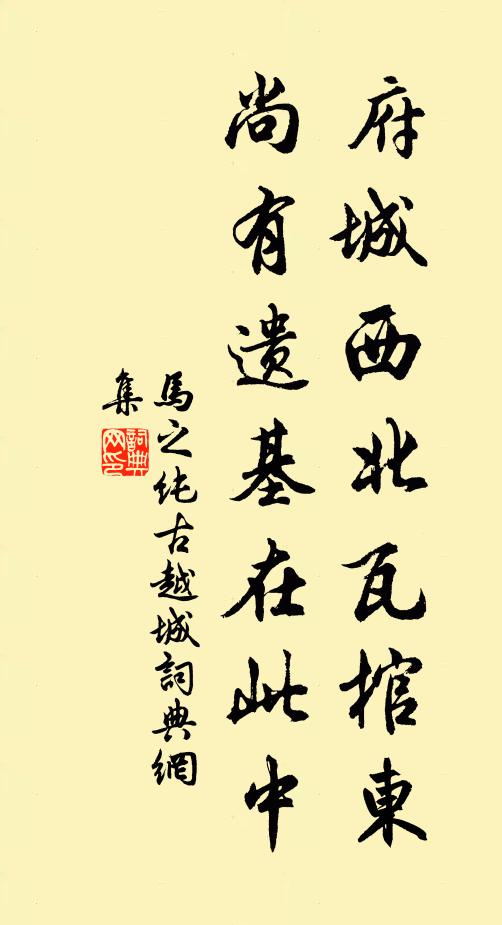 府城西北瓦棺東
尚有遗基在此中
馬之純古越城詞典網
集
詞典网印